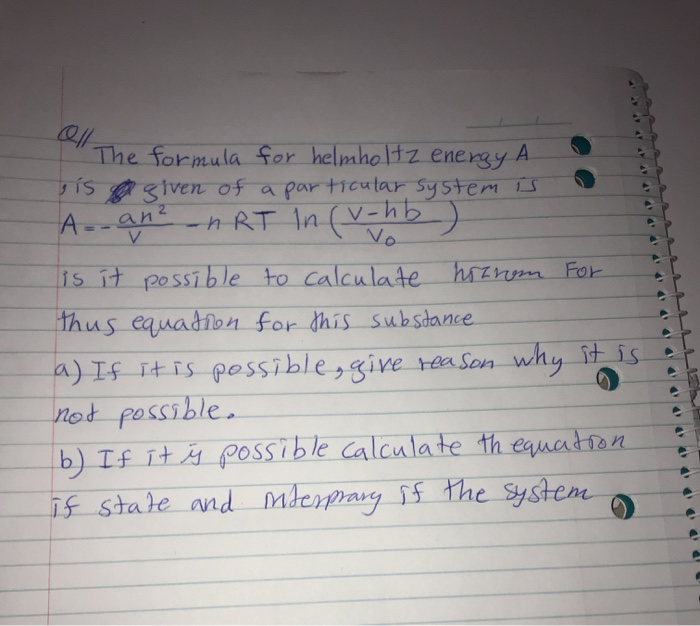 Q//
The formula for helmholtz energy A
is given of a particular system is
A = - an² / v - n RT ln ( v-hb / Vo )
is it possible to calculate For
thus equation for this substance
a) If it is possible, give reason why it is
not possible.
b) If it is possible calculate th equation
if state and if the system